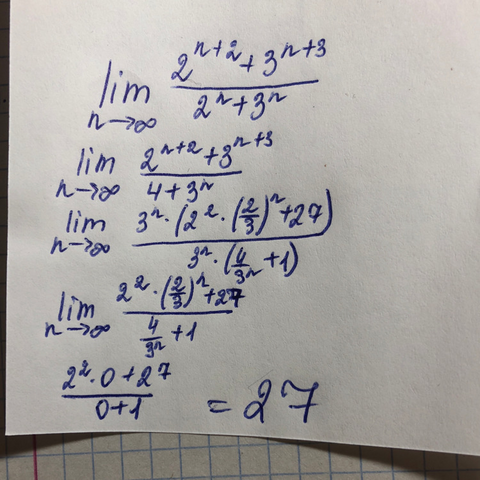 lim n→∞ (2^(n+2) + 3^(n+3)) / (2^n + 3^n)
lim n→∞ (2^(n+2) + 3^(n+3)) / (4 + 3^n)
lim n→∞ (3^n · (2^2 · (2/3)^n + 27)) / (3^n · (4/3^n + 1))
lim n→∞ (2^2 · (2/3)^n + 27) / (4/3^n + 1)
(2^2 · 0 + 27) / (0 + 1) = 27